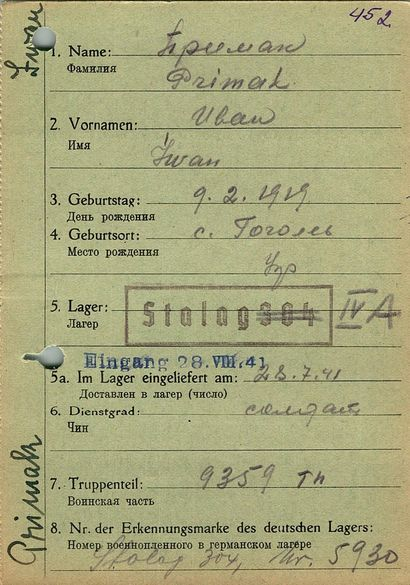 452
Iwan
1. Name: Примак
Фамилия Primak
2. Vornamen: Иван
Имя Iwan
3. Geburtstag: 9. 2. 1919
День рождения
4. Geburtsort: с. Гоголь
Место рождения
5. Lager: Stalag 304 IV A
Лагерь
Eingang 28. VIII. 41
5a. Im Lager eingeliefert am: 28. 7. 41
Доставлен в лагерь (число)
6. Dienstgrad: солдат
Чин
7. Truppenteil: 9359 тп
Воинская часть
8. Nr. der Erkennungsmarke des deutschen Lagers:
Номер военнопленного в германском лагере
Stalag 304, Nr. 5930
Primak